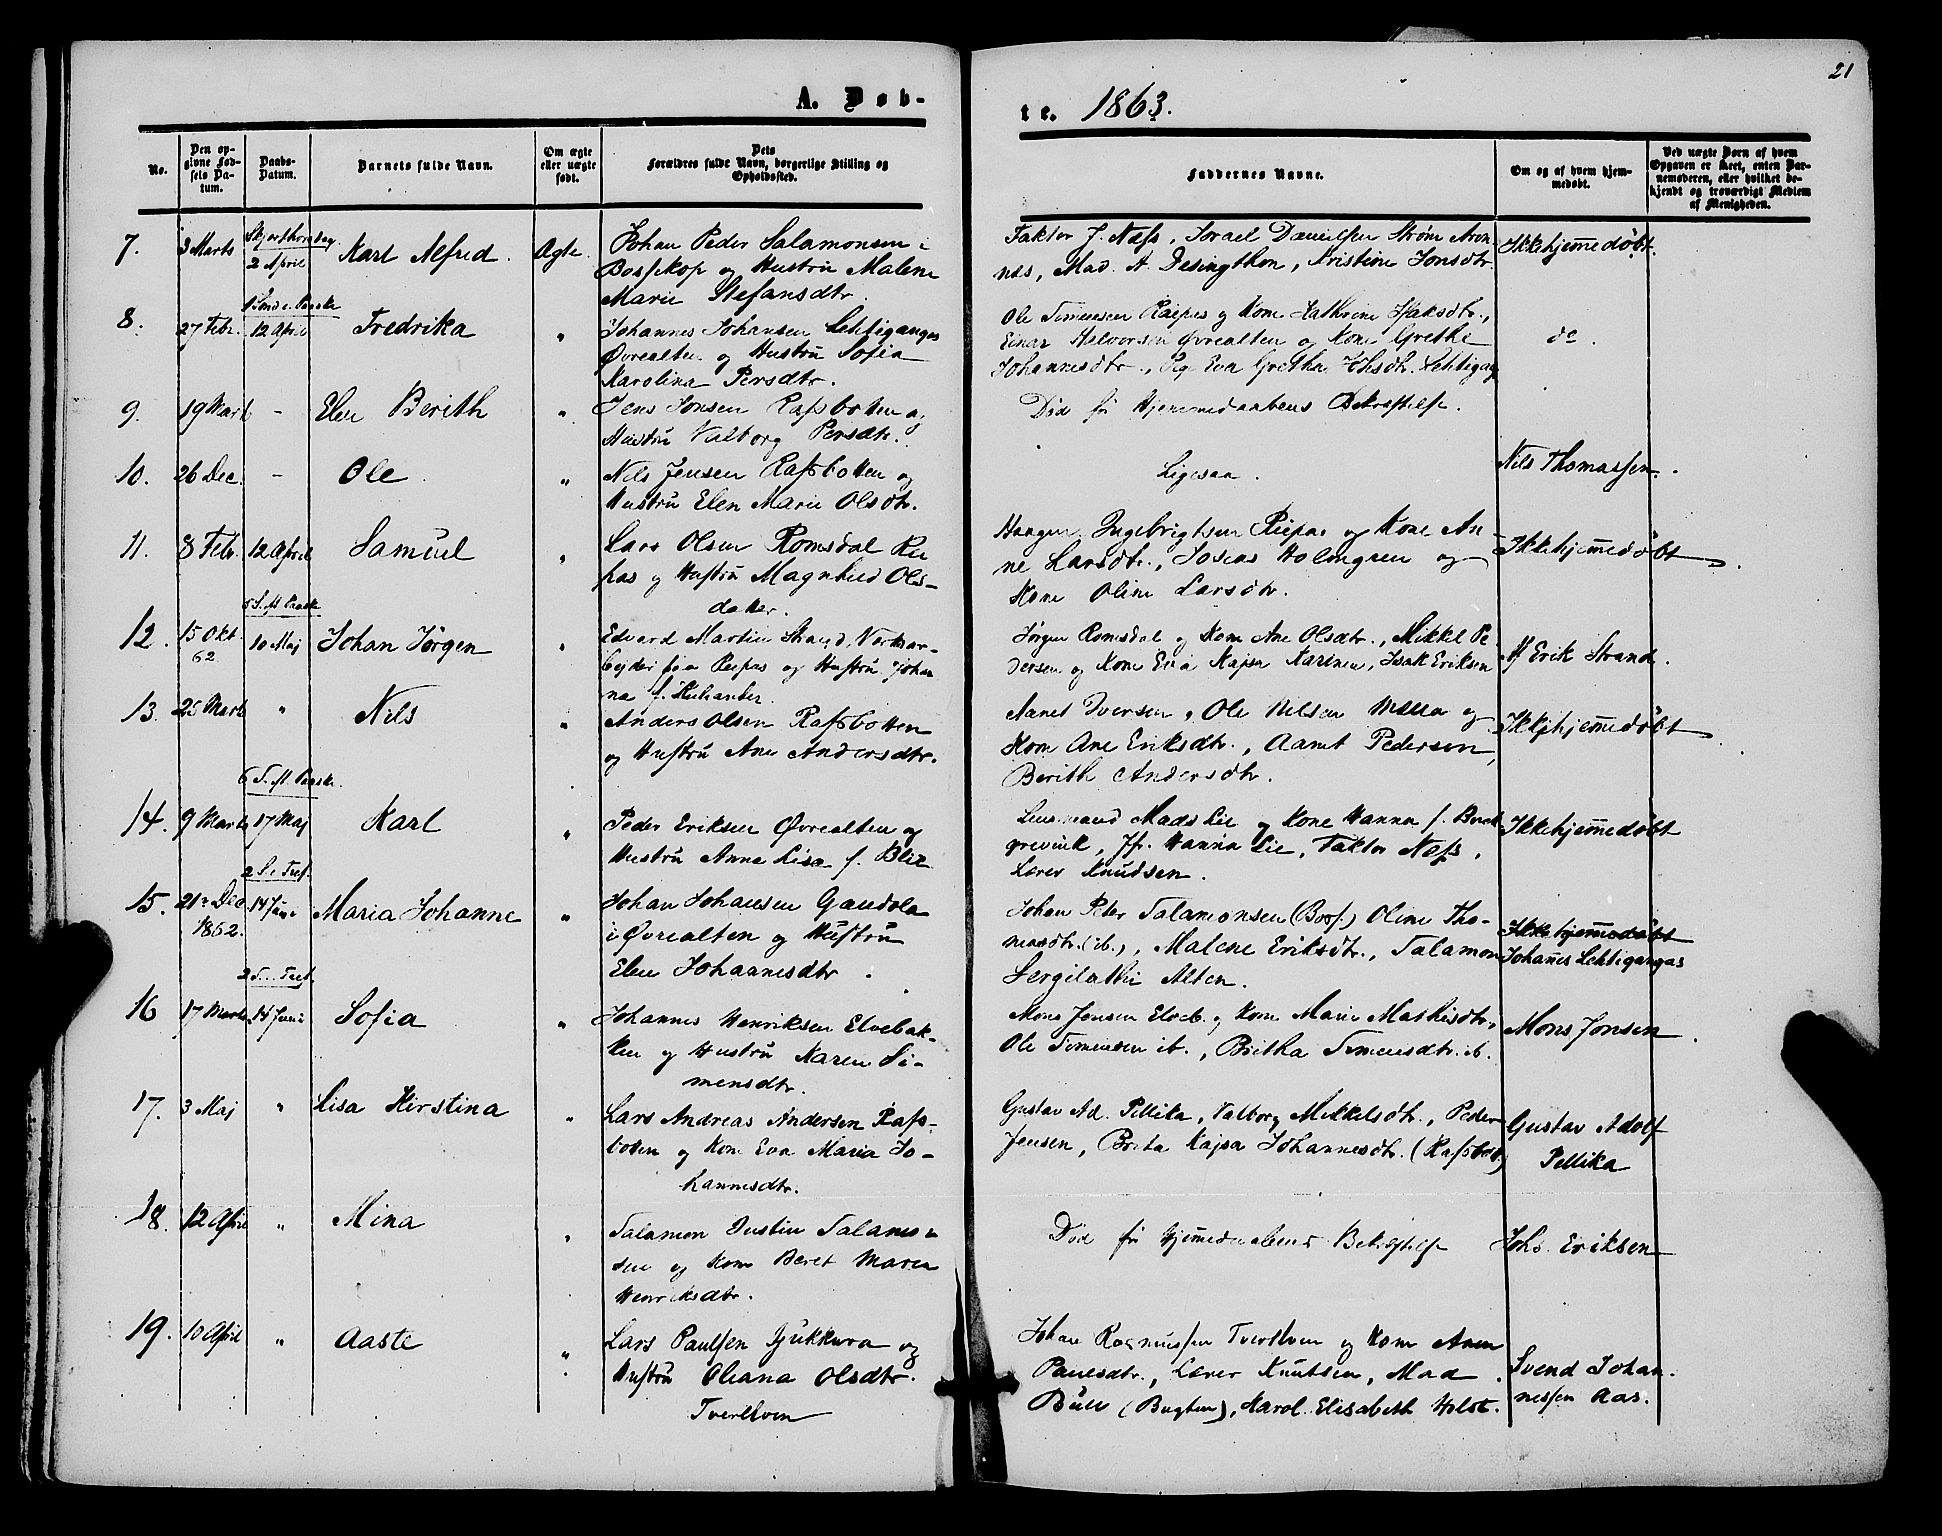 21
A. Døb-
te. 1863.
No.
Den opgivne Fødsels Datum.
Daabs-Datum.
Barnets fulde Navn.
Om ægte eller uægte født.
Dets Forældres fulde Navn, borgerlige Stilling og Opholdssted.
Faddernes Navne.
Om og af hvem hjemmedøbt.
Ved uægte Børn af hvem Opgaven er skeet, enten Barnemoderen, eller hvilket bekjendt og troværdigt Medlem af Menigheden.
7. 3 Marts Skjærthorsdag 2 April Karl Alfred. Ægte.
Johan Peder Salamonsen i
Bossekop og Hustru Malene
Marie Stefansdtr.
Faktor J. Næss, Israel Danielsen Strøm Aron-
næs, Mad. A. Desingthon, Kristine Jonsdtr.
Ikkehjemmedøbt.
8. 27 Febr. 12 April Fredrika "
Johannes Johansen Lehtigangas
Øvrealten og Hustru Sofia
Karolina Persdtr.
Ole Simensen Raipas og Kone Kathrine Isaksdtr.,
Einar Halvorsen Øvrealten og Kone Grethe
Johannesdtr., Pig Eva Gretha Johsdtr. Lehtigag
do.
9. 19 Marts - Elen Berith "
Jens Jonsen Rafsbotten og
Hustru Valborg Persdtr.
Død før Hjemmedaabens Bekræftelse.
10. 26 Dec. - Ole "
Nils Jensen Rafsbotten og
Hustru Elen Marie Olsdtr.
Ligesaa.
Nils Thomassen.
11. 8 Febr. 12 April Samuel "
Lars Olsen Romsdal Rei-
pas og Hustru Magnhild Ols-
datter.
Haagen Ingebrigtsen Reipas og Kone An-
ne Larsdtr., Josias Holmgren og
Kone Oline Larsdtr.
Ikkehjemmedøbt
12. 15 Okt. 62 5 S. M. Paaske 10 Maj Johan Jørgen "
Edvard Martin Strand, Verksar-
bejder fra Reipas og Hustru Johan-
na f.
Jørgen Romsdal og Kone Ane Olsdtr., Mikkel Pe-
dersen og Kone Eva Kajsa Karinen, Isak Eriksen
Af Erik Strand.
13. 25 Marts " Nils "
Anders Olsen Rafsbotten
og Hustru Ane Andersdtr.
Aanet Iversen, Ole Nilsen og
Kone Ane Eriksdtr., Aanet Pedersen,
Berith Andersdtr.
Ikkehjemmedøbt
14. 9 Marts 6 S. M. Paaske. 17 Maj Karl "
Peder Eriksen Øvrealten og
Hustru Anna Lisa f. Blix
Lensmand Mads Lie og Kone Hanna f. Buck
grevink, Jfr. Hanna Lie, Faktor Næss,
Lærer Knudsen.
Ikkehjemmedøbt
15. 21de Dec. 1862. 2 S. e. Tref. 14 Juni Maria Johanne "
Johan Johansen Gandola
i Øvrealten og Hustru
Elen Johannesdtr.
Johan Peter Salamonsen (Boss.) Oline Tho-
masdtr. (ib.), Malene Eriksdtr., Salamon
Sergilathi Alten.
Ikkehjemmedøbt
Johanes Lehtigangas
16 17 Marts 2 S. e. Tref. 14 Juni Sofia "
Johannes Henriksen Elvebak-
ken og Hustru Karen Si-
mensdtr.
Mons Jonsen Elveb. og Kone Marie Mathisdtr.,
Ole Simensen ib., Britha Simensdtr. ib.
Mons Jonsen.
17. 3 Maj " Lisa Kirstina "
Lars Andreas Andersen Rafs-
botten og Kone Eva Maria Jo-
hannesdtr.
Gustav Ad. Pellika, Valborg Mikkelsdtr., Peder
Jensen, Brita Kajsa Johannesdtr. (Rafsbott.)
Gustav Adolf
Pellika
18. 12 April " Mina "
Salamon Justin Salamon-
sen og Kone Beret Maria
Henriksdtr.
Død før Hjemmedaabens Bekræftelse
Johs. Eriksen
19. 10 April " Aaste "
Lars Paulsen Gjukkura og
Hustru Oliana Olsdtr.
Tverelven
Johan Rasmussen Tverelven og Kone Anne
Paulsdtr., Lærer Knutsen, Mad.
Bull (Bugten), Karol. Elisabeth Holst.
Svend Johan-
nessen Aas.